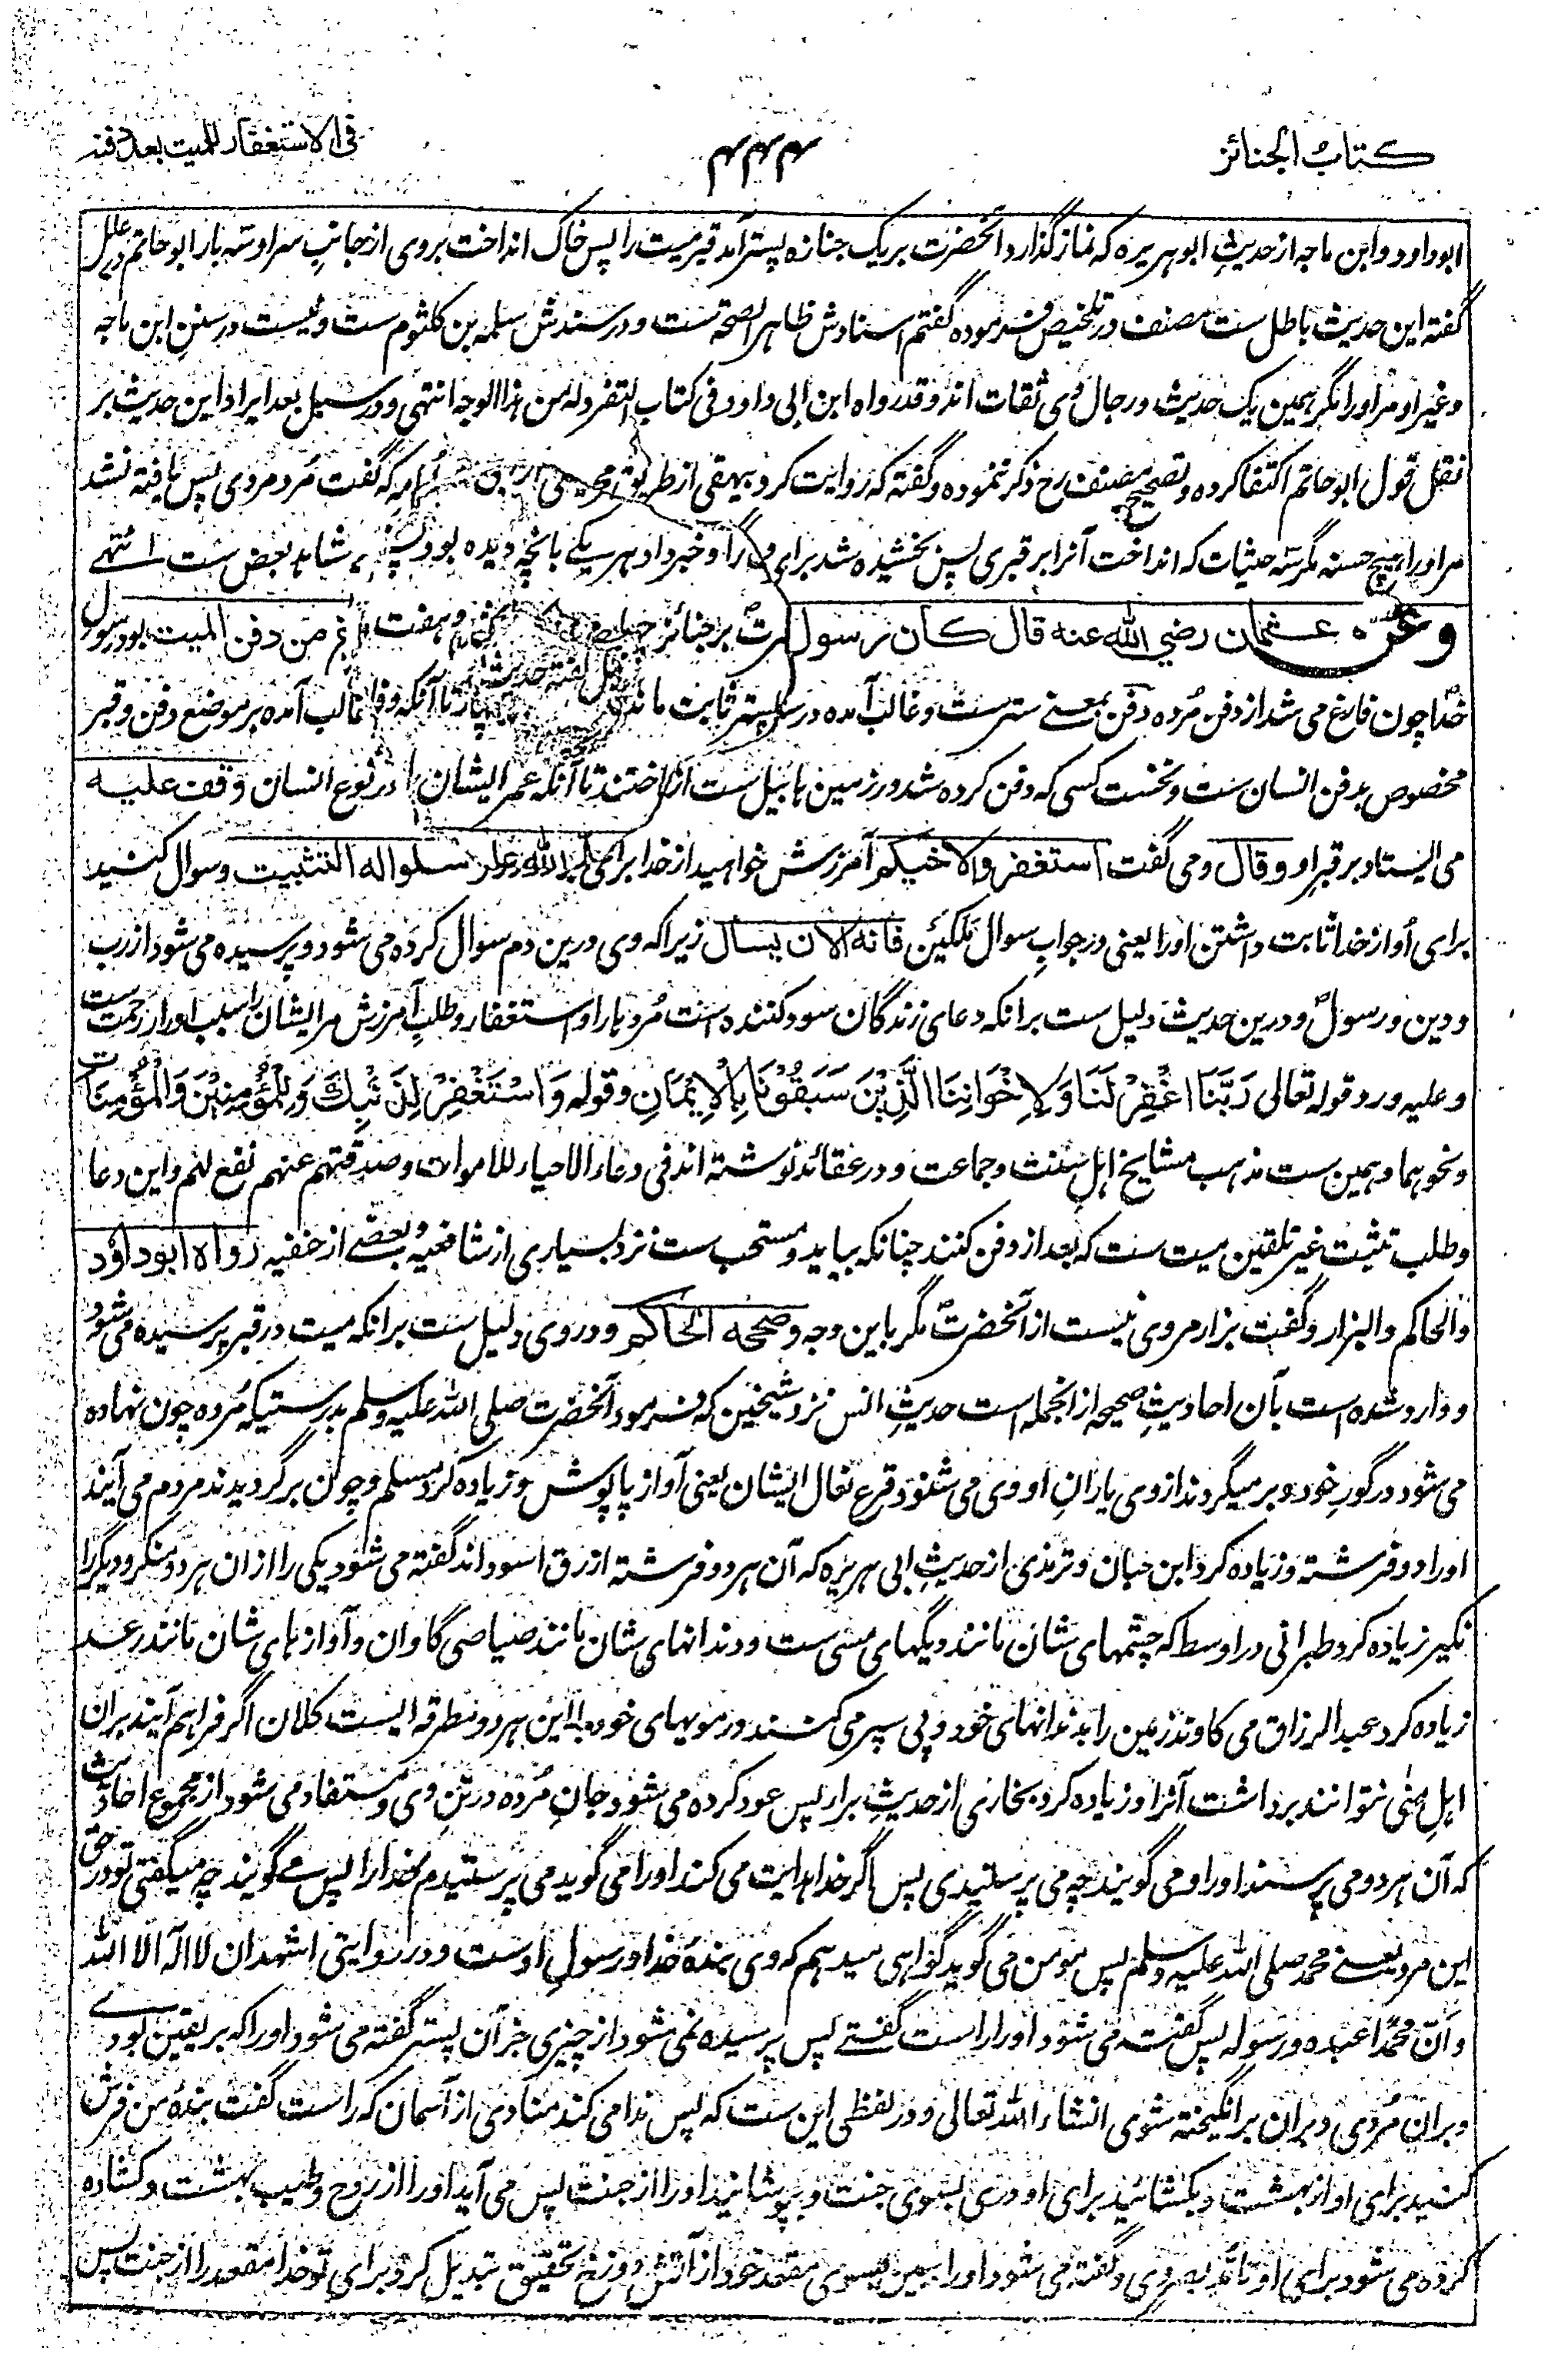 كتاب الجنائز
۴۴۴
فى الاستغفار للميت بعد دفنه
ابوداود وابن ماجه از حدیثِ ابوهریره که نماز گذارد آنحضرت بر یک جنازه پستر آمد قبر میت را پس خاک انداخت بروی از جانبِ سر او سه بار ابوحاتم در علل
گفته این حدیث باطل ست مصنف در تلخیص فرموده گفتم اسنادش ظاهر الصحة ست و در سندش سلمه بن کلثوم ست و نیست در سننِ ابن ماجه
و غیر او مر او را مگر همین یک حدیث و رجال وی ثقات اند و قد رواه ابن ابی داود فی کتاب التفرد له من هذا الوجه انتهی و در سبل بعد ایراد این حدیث بر
نقل قول ابوحاتم اکتفا کرده و تصحیح مصنف رح ذکر ننموده و گفته که روایت کرد بیهقی از طریق محمد بن که گفت مُرد مردی پس یافته نشد
مر او را هیچ حسنه مگر سه حثیات که انداخت آنرا بر قبری پس بخشیده شد برای وی و خبر داد هر یکے بانچه دیده بود شاهد بعض ست انتهے
وعن عثمان رضي الله عنه قال كان رسول بر جنائز و هفت من دفن الميت بود رسول
خدا چون فارغ می شد از دفن مُرده دفن بمعنے ستر ست و غالب آمده در ثابت تا آنکه غالب آمده بر موضع دفن و قبر
مخصوص بدفن انسان ست و نخست کسی که دفن کرده شد در زمین هابیل ست از تا آنکه عمر ایشان در نوع انسان وقف عليه
می ایستاد بر قبر او وقال و می گفت استغفروا لاخيكم آمرزش خواهید از خدا برای سلوا له التثبيت و سوال کنید
برای او از خدا ثابت داشتن او را یعنی در جوابِ سوالِ ملکین فانه الان يسأل زیرا که وی درین دم سوال کرده می شود و پرسیده می شود از رب
و دین و رسول و درین حدیث دلیل ست برانکه دعای زندگان سود کننده است مُردها را و استغفار و طلب آمرزش مر ایشان را سبب اوراز رحمت ست
و علیه ورد قوله تعالی رَبَّنَا اغْفِرْ لَنَا وَلِإِخْوَانِنَا الَّذِيْنَ سَبَقُوْنَا بِالْاِيْمَانِ و قوله وَاسْتَغْفِرْ لِذَنْبِكَ وَلِلْمُؤْمِنِيْنَ وَالْمُؤْمِنَات
و نحوهما و همین ست مذهب مشایخ اهل سنت و جماعت و در عقائد نوشته اند فی دعاء الاحیاء للاموات و صدقتهم عنهم نفع لهم و این دعا
و طلب تثبت غیر تلقین میت ست که بعد از دفن کنند چنانکه بیاید و مستحب ست نزد بسیاری از شافعیه و بعضے از حنفیه رواه ابوداؤد
والحاکم والبزار و گفت بزار مروی نیست از آنحضرتؐ مگر باین وجه وصححه الحاكم و در وی دلیل ست برانکه میت در قبر پرسیده می شود
و وارد شده است بآن احادیثِ صحیحه از انجمله است حدیثِ انس نزد شیخین که فرمود آنحضرت صلی الله علیه وسلم بدرستیکه مُرده چون نهاده
می شود در گورِ خود و بر میگردند از وی یارانِ او وی می شنود قرع نعال ایشان یعنی آواز پاپوش و زیاده کرد مسلم و چون برگردیدند مردم می آیند
او را دو فرشته و زیاده کرد ابن حبان و ترمذی از حدیثِ ابی هریره که آن هر دو فرشته ازرق اسود اند گفته می شود یکی را از ان هر دو منکر و دیگر را
نکیر زیاده کرد طبرانی در اوسط که چشمهای شان مانند دیگهای مسی ست و دندانهای شان مانند صیاصی گاوان و آوازهای شان مانند رعد
زیاده کرد عبدالرزاق می کاوند زمین را بدندانهای خود و پی سپر می کنند در مویهای خود با این هر دو مطرقه ایست کلان اگر فراهم آیند بران
اهلِ منٰی نتوانند برداشت آنرا و زیاده کرد بخاری از حدیثِ براء پس عود کرده می شود جانِ مُرده در تن وی و مستفاد می شود از مجموع احادیث
که آن هر دو می پرسند او را و می گویند چه می پرستیدی پس اگر خدا هدایت می کند او را می گوید می پرستیدم خدا را پس مے گویند چه میگفتی تو در حق
این مرد یعنے محمد صلی الله علیه وسلم پس مومن می گوید گواهی میدهم که وی بندهٔ خدا و رسولِ اوست و در روایتی اشهد ان لا اله الا الله
و ان محمدا عبده و رسوله پس گفته می شود او را راست گفتے پس پرسیده نمی شود از چیزی جز آن پستر گفته می شود او را که بر یقین بودے
و بران مُردی و بران برانگیخته شوی انشاء الله تعالی و در لفظی این ست که پس ندا می کند منادی از آسمان که راست گفت بندهٔ من فرش
کنید برای او از بهشت و بکشائید برای او دری بسوی جنت و بپوشانید او را از جنت پس می آید او را از روح و طیب بهشت و کشاده
کرده می شود برای او تا مد بصر وی و گفته می شود او را ببین بسوی مقعد خود از آتش دوزخ بتحقیق تبدیل کرد برای تو خدا مقعد را از جنت پس